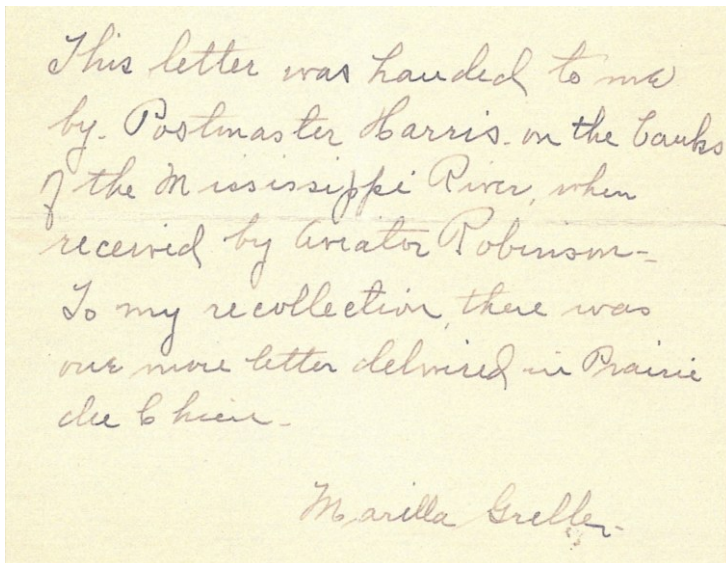 This letter was handed to me
by. Postmaster Harris. on the banks
of the Mississippi River, when
received by Aviator Robinson-
To my recollection, there was
one more letter delivired in Prairie
du Chien.
Marilla Greller